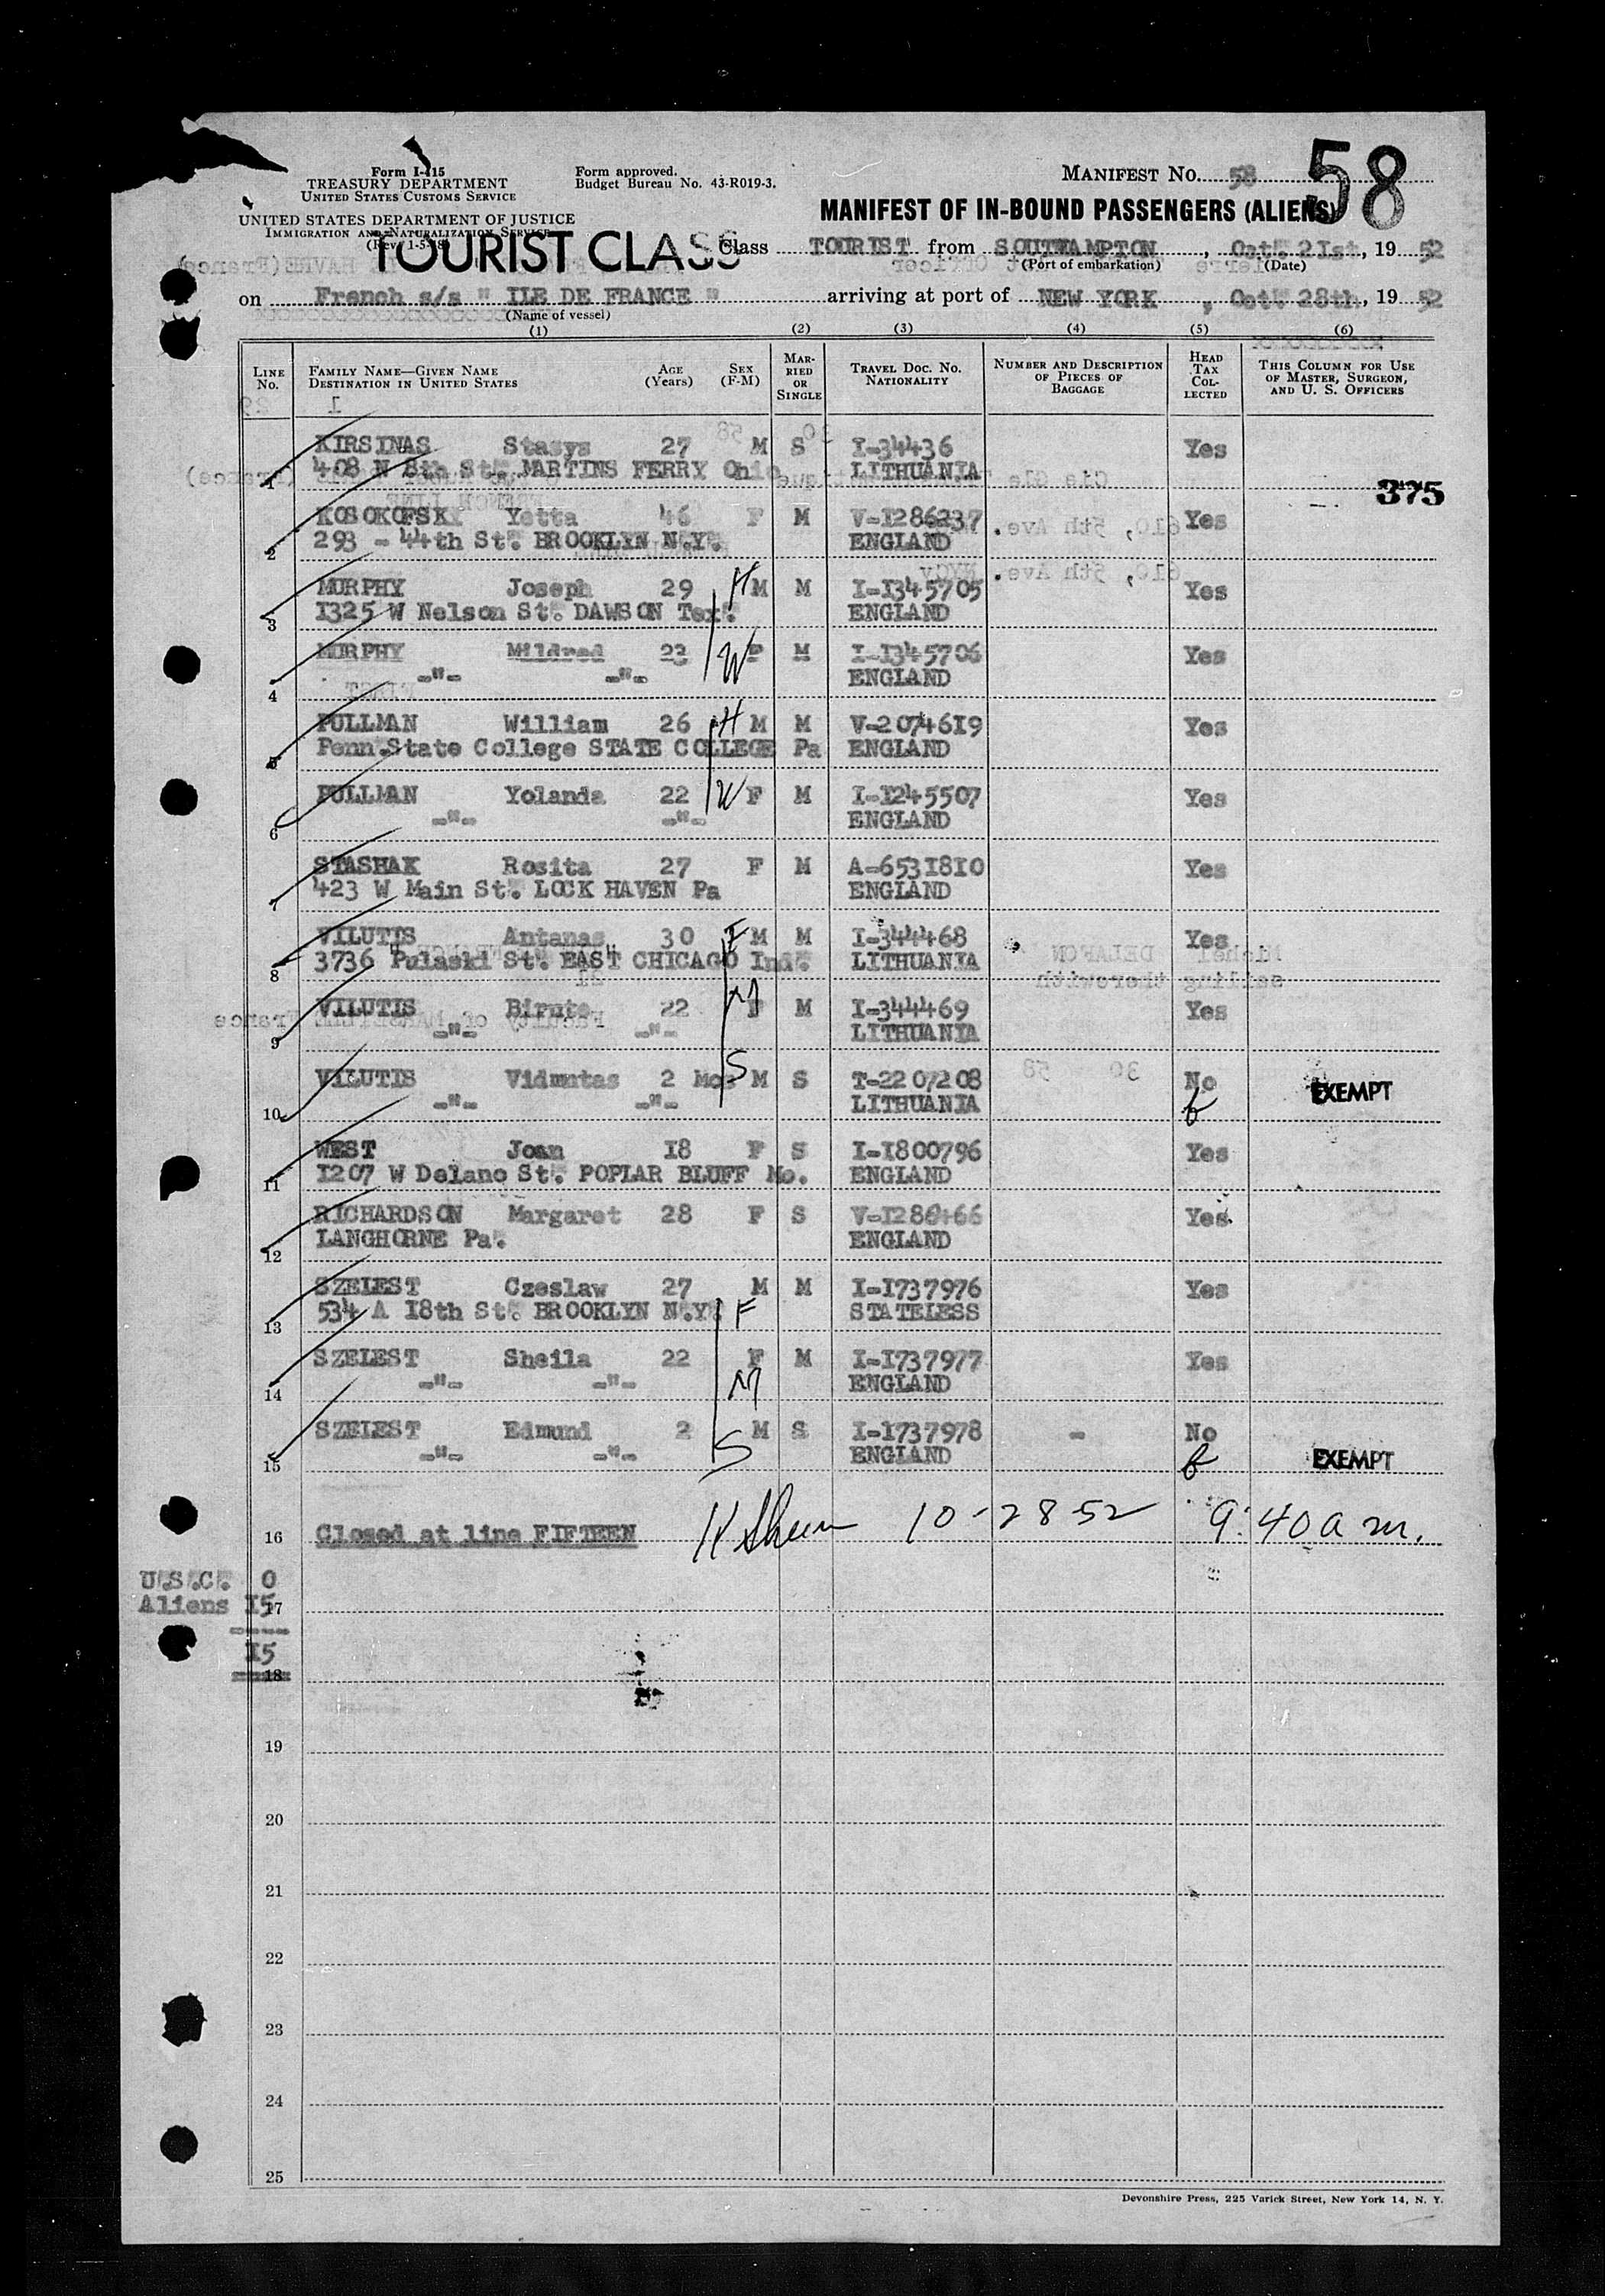 Form I-415
TREASURY DEPARTMENT
UNITED STATES CUSTOMS SERVICE
UNITED STATES DEPARTMENT OF JUSTICE
IMMIGRATION AND NATURALIZATION SERVICE
Form approved.
Budget Bureau No. 43-R019-3.
MANIFEST No. 58
58
MANIFEST OF IN-BOUND PASSENGERS (ALIENS)
TOURIST CLASS
Class TOURIST from SOUTHAMPTON, Oct. 21st, 19 52
(Port of embarkation) (Date)
on French s/s " ILE DE FRANCE " arriving at port of NEW YORK, Oct. 28th, 19 52
(Name of vessel)
(1) (2) (3) (4) (5) (6)
LINE No. FAMILY NAME—GIVEN NAME DESTINATION IN UNITED STATES AGE (Years) SEX (F-M) MARRIED OR SINGLE TRAVEL DOC. NO. NATIONALITY NUMBER AND DESCRIPTION OF PIECES OF BAGGAGE HEAD TAX COLLECTED THIS COLUMN FOR USE OF MASTER, SURGEON, AND U. S. OFFICERS
KIRSINAS Stasys 27 M S I-34436 Yes
1 408 N 8th St. MARTINS FERRY Ohio LITHUANIA
375
KOSOKOFSKY Yetta 46 F M V-1286237 Yes
2 293 - 44th St. BROOKLYN N.Y. ENGLAND
MURPHY Joseph 29 H M M I-1345705 Yes
3 1325 W Nelson St. DAWSON Tex. ENGLAND
MURPHY Mildred 23 W F M I-1345706 Yes
4 -"- -"- ENGLAND
PULLMAN William 26 H M M V-2074619 Yes
5 Penn.State College STATE COLLEGE Pa ENGLAND
PULLMAN Yolanda 22 W F M I-1245507 Yes
6 -"- -"- ENGLAND
STASHAK Rosita 27 F M A-6531810 Yes
7 423 W Main St. LOCK HAVEN Pa ENGLAND
VILUTIS Antanas 30 F M M I-344468 Yes
8 3736 Pulaski St. EAST CHICAGO Ind. LITHUANIA
VILUTIS Birute 22 M F M I-344469 Yes
9 -"- -"- LITHUANIA
VILUTIS Vidmutas 2 Mos S M S T-2207208 No EXEMPT
10 -"- -"- LITHUANIA
WEST Joan 18 F S I-1800796 Yes
11 1207 W Delano St. POPLAR BLUFF Mo. ENGLAND
RICHARDSON Margaret 28 F S Yes
12 LANGHORNE Pa. ENGLAND
SZELEST Czeslaw 27 M M I-1737976 Yes
13 534 A 18th St. BROOKLYN N.Y. F STATELESS
SZELEST Sheila 22 F M I-1737977 Yes
14 -"- -"- M ENGLAND
SZELEST Edmund 2 M S I-1737978 - No
15 -"- -"- S ENGLAND EXEMPT
16 Closed at line FIFTEEN 10-28-52 9:40 a m.
U.S.C. 0
Aliens 15
17
15
18
19
20
21
22
23
24
25
Devonshire Press, 225 Varick Street, New York 14, N. Y.